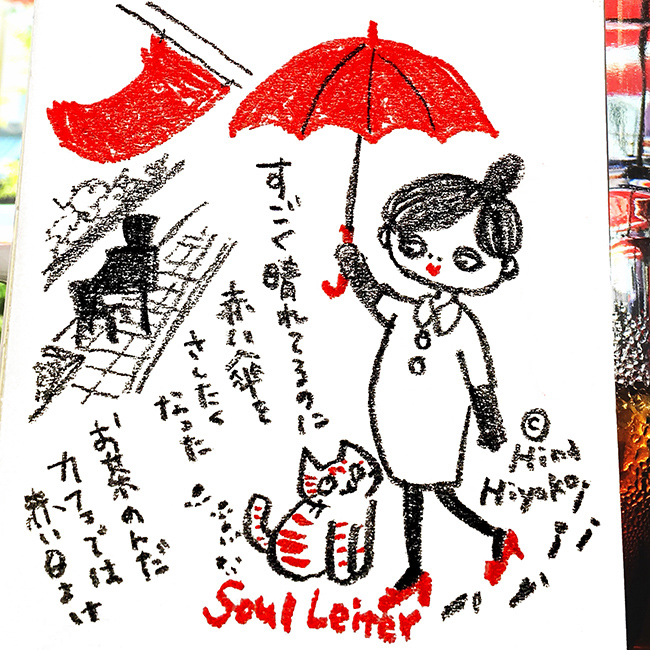 すごく晴れてるのに
赤い傘を
さしたく
なった
お茶のんだ
カフェでは
赤い日よけ
©
Hina
Soul Leiter